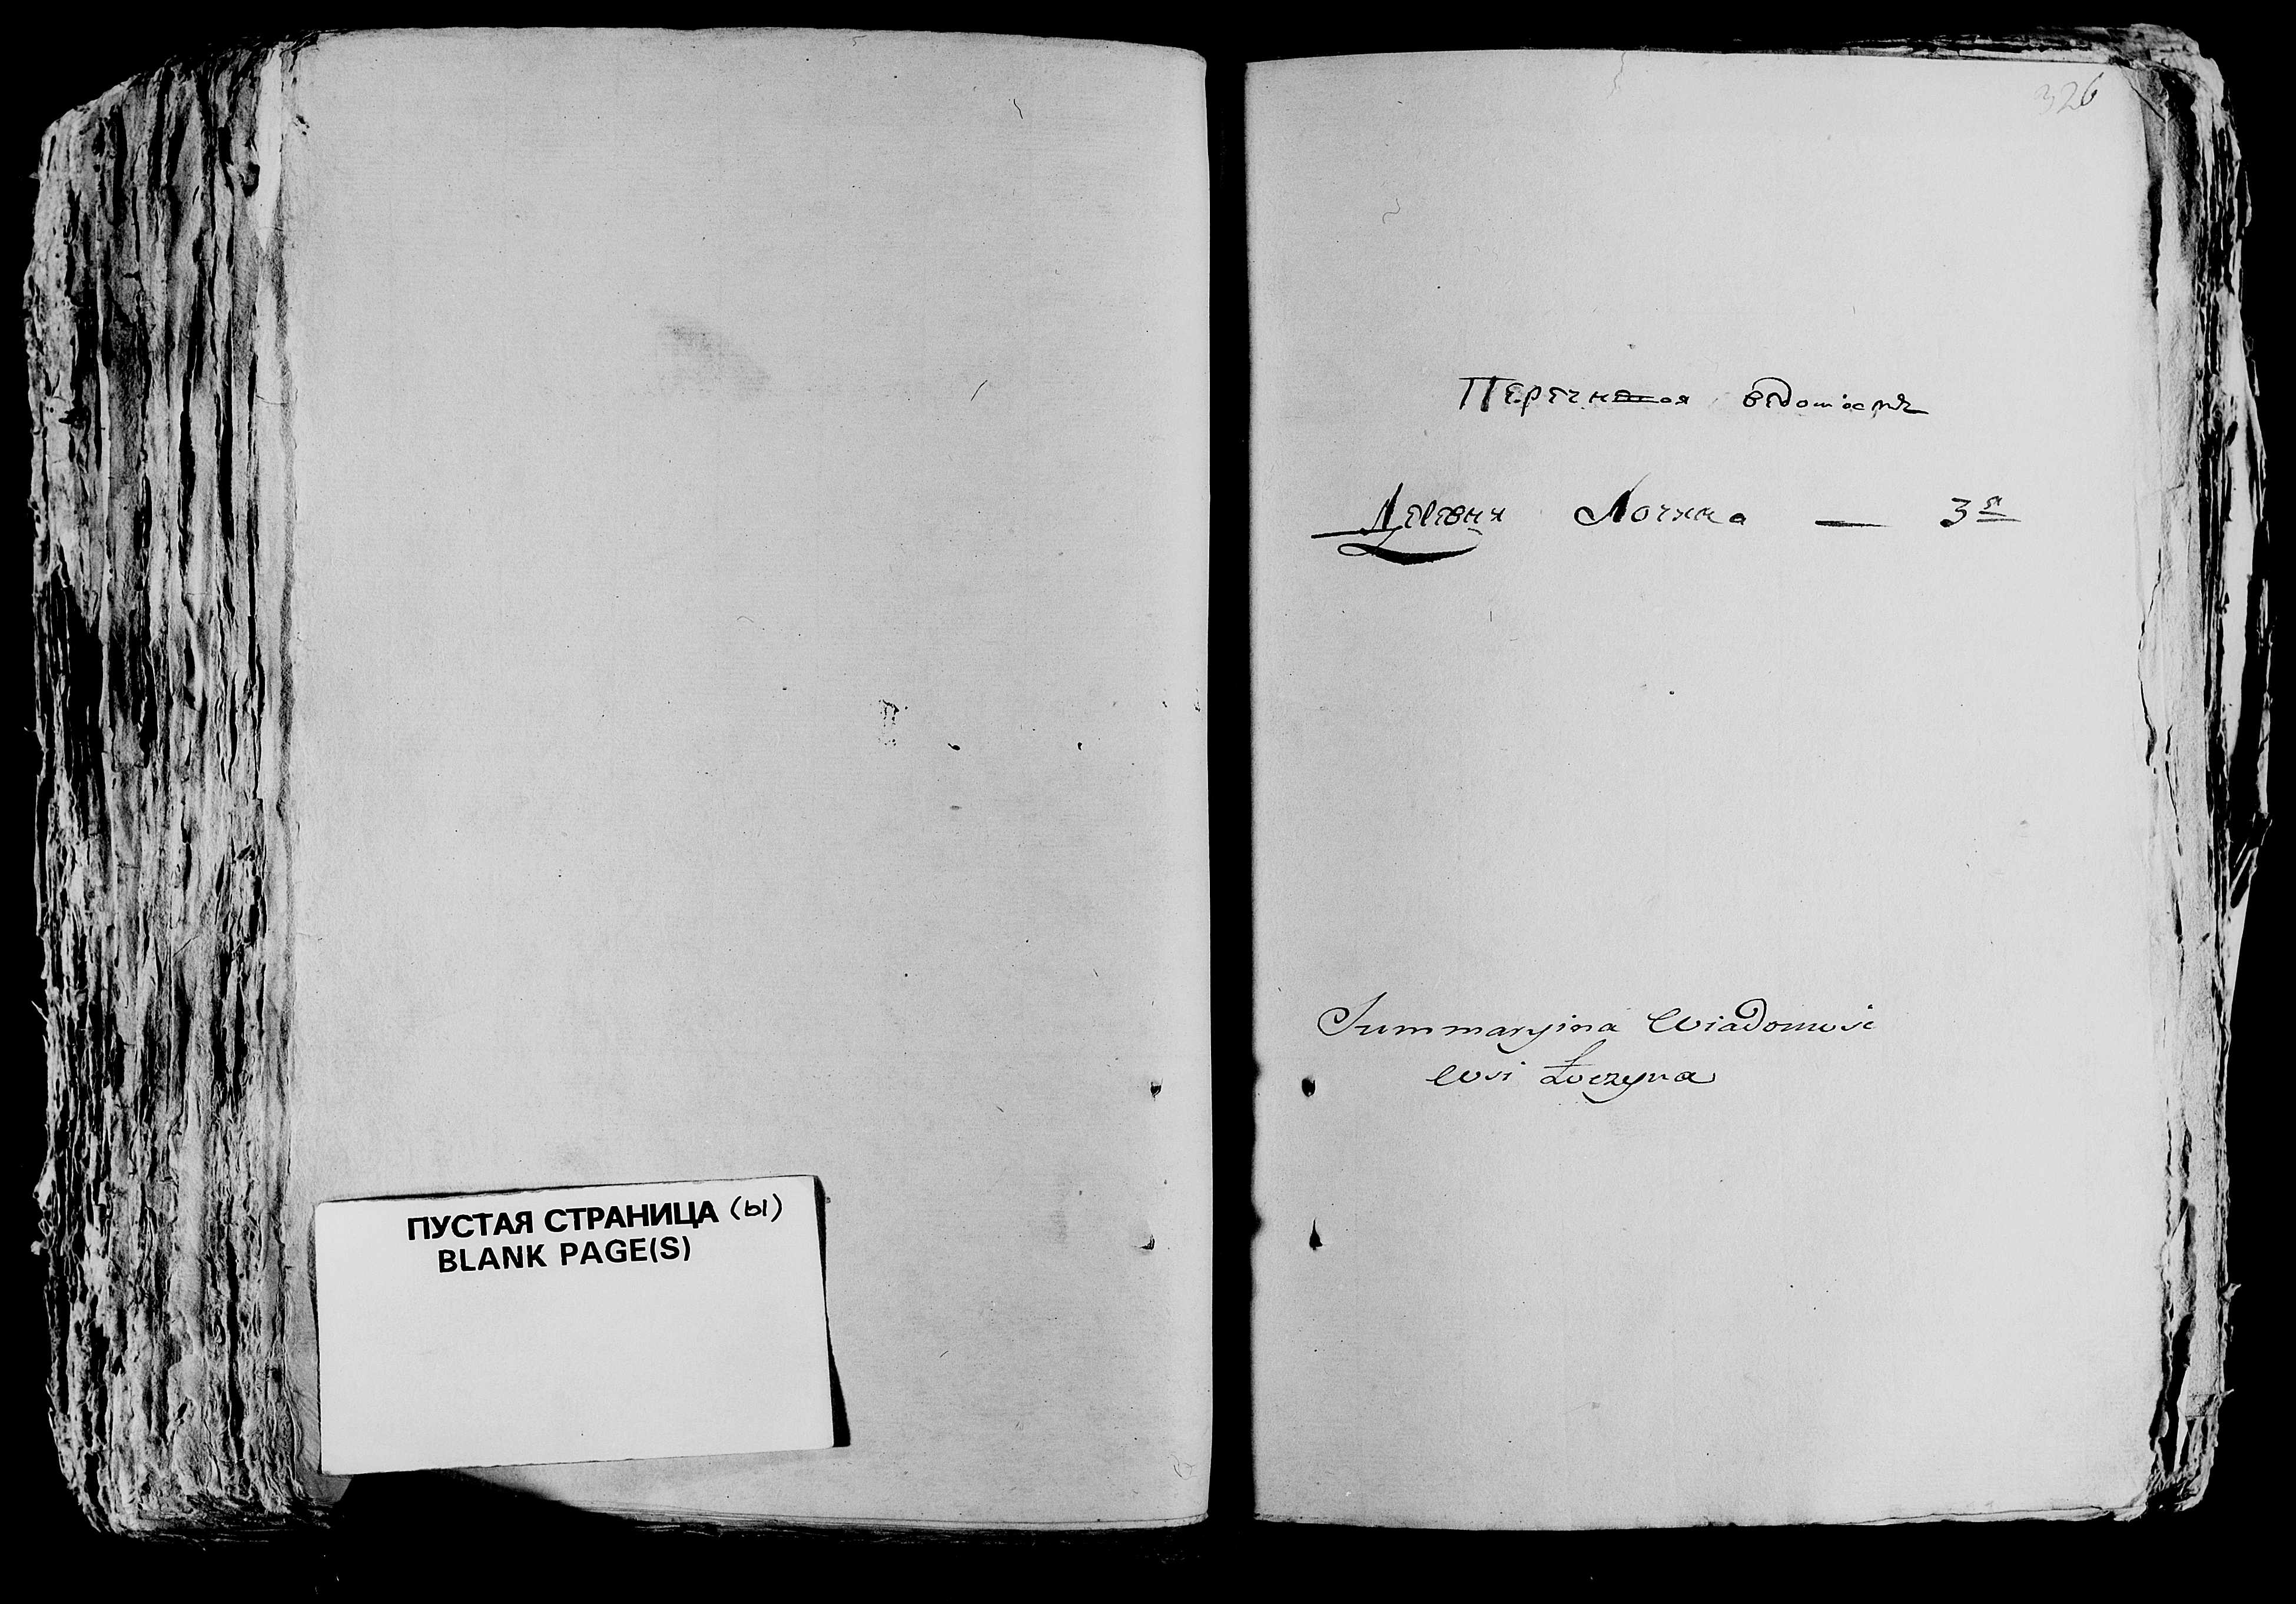 ПУСТАЯ СТРАНИЦА (Ы)
BLANK PAGE(S)
326
Перечневая ведомость
Деревня Лочина — 3я
Summaryina Wiadomość
Wsi Łoczyna